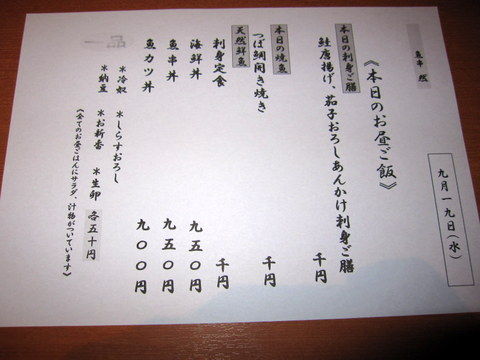 魚串 然
九月一九日(水)
《本日のお昼ご飯》
本日の刺身ご膳
鮭唐揚げ、茄子おろしあんかけ刺身ご膳 千円
本日の焼魚
つぼ鯛開き焼き 千円
天然鮮魚
刺身定食 千円
海鮮丼 九五〇円
魚串丼 九五〇円
魚カツ丼 九〇〇円
一品
*冷奴 *しらすおろし
*納豆 *お新香 *生卵 各五十円
(全てのお昼ごはんにサラダ、汁物がついています)